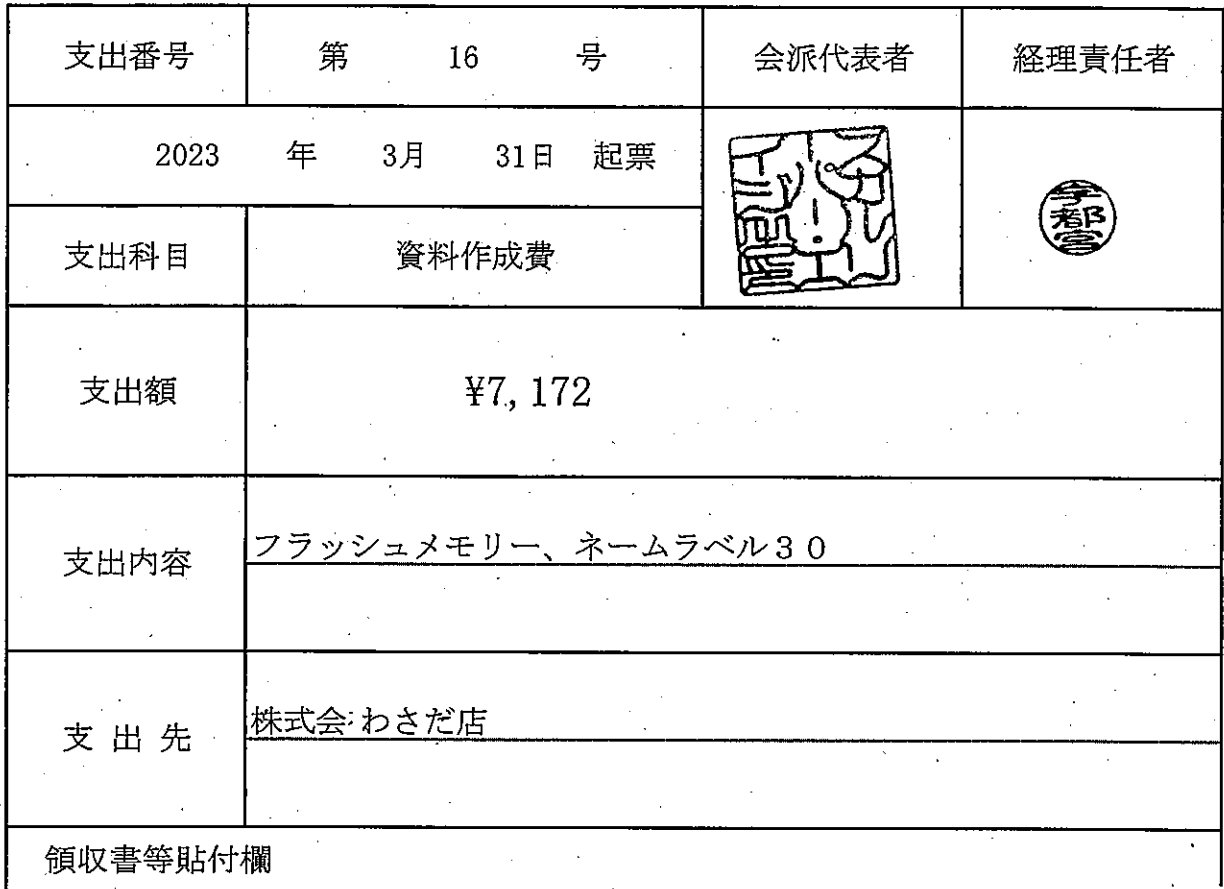 支出番号 第 16 号 会派代表者 経理責任者
2023 年 3月 31日 起票
宇都宮
支出科目 資料作成費
支出額 ¥7,172
支出内容 フラッシュメモリー、ネームラベル３０
支出先 株式会 わさだ店
領収書等貼付欄